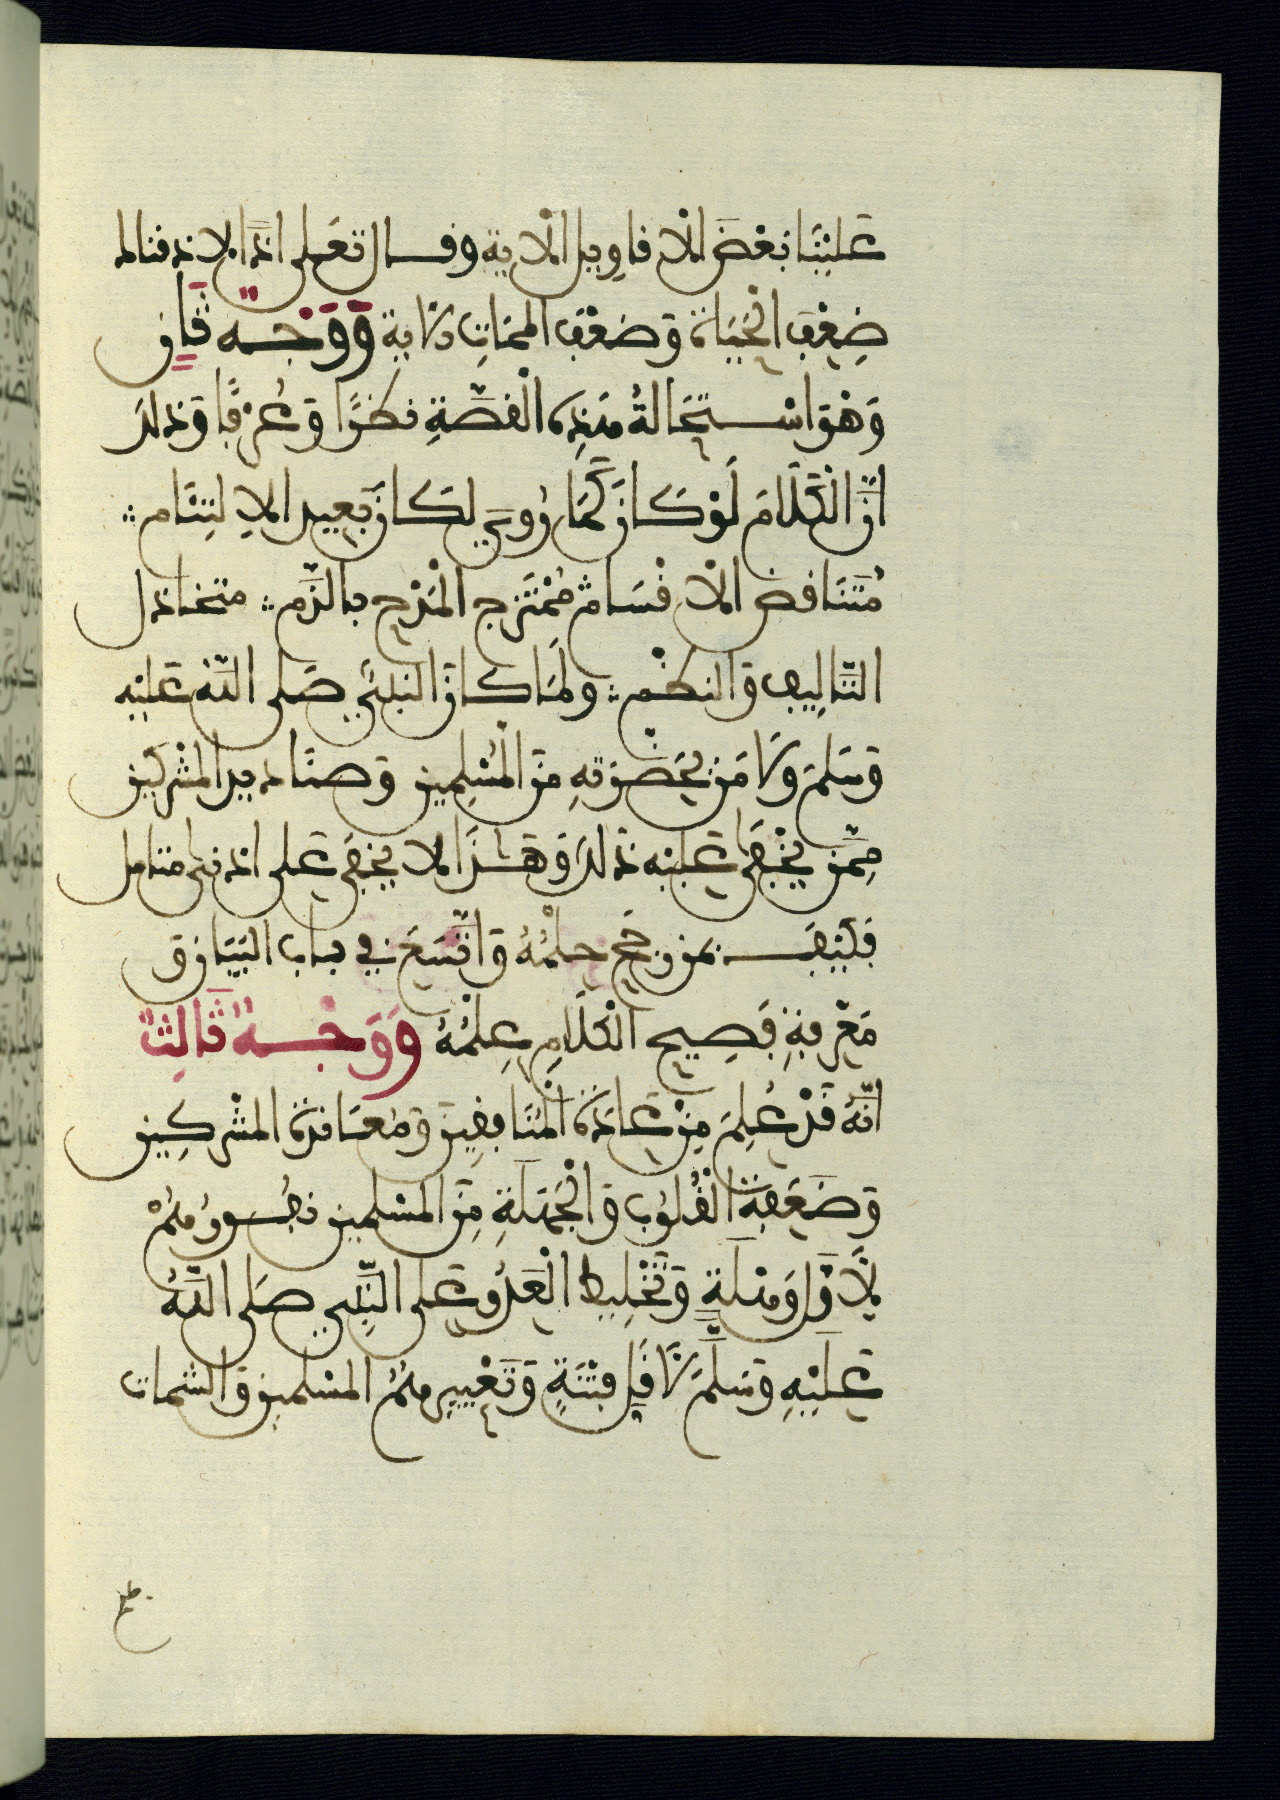 عَلَيْنَا بَعْضَ الْأَقَاوِيلِ الْآيَةَ وقال تعلى إذًا لأذقناك
ضِعْفَ الْحَيَاةِ وَضِعْفَ الْمَمَاتِ الآية وَوَجْهٌ ثَانٍ
وَهْوَ اسْتِحَالَةُ هَذِهِ الْقِصَّةِ نَظَرًا وَعُرْفًا وَذلك
أَنَّ الْكَلَامَ لَوْ كَانَ كَمَا رُوِيَ لكَانَ بَعِيدَ الِالْتِئَامِ
مُتَنَاقِضَ الْأَقْسَامِ مُمْتَزِجَ الْمَدْحِ بالذَّمِّ متخاذل
التَّأْلِيفِ وَالنظْمِ ولَمَا كَانَ النبيّ صَلى اللَّهُ عَلَيْهِ
وَسَلمَ وَلَا مَنْ بِحَضْرَتِهِ مِنَ الْمُسْلِمِينَ وَصَنَادِيدِ الْمُشْرِكِينَ
مِمَّنْ يَخْفَى عَلَيْهِ ذلك وَهَذَا لَا يَخْفَى عَلى أدنى متأمل
فَكَيْفَ بمن رجح حِلْمُهُ وَاتَّسَعَ في باب الْبَيَانِ وَ
مَعْرِفَةِ فَصِيحِ الْكَلَامِ عِلْمُهُ وَوَجْهٌ ثَالِثٌ
أَنَّهُ قَدْ عُلِمَ مِنْ عَادَةِ الْمُنَافِقِينَ وَمُعَانَدَةِ الْمُشْرِكِينَ
وَضَعَفَةِ الْقُلُوبِ وَالْجَهَلَةِ مِنَ الْمسْلِمِينَ نُفُورُهُمْ
لِأَوَّلِ وَهْلَةٍ وَتَخْلِيطُ الْعَدُوِّ عَلى النَّبِيِّ صَلى اللَّهُ
عَلَيْهِ وَسَلَّمَ لِأَقَلِّ فِتْنَةٍ وَتَعْيِيرُهُمُ الْمسْلِمِينَ وَالشمات